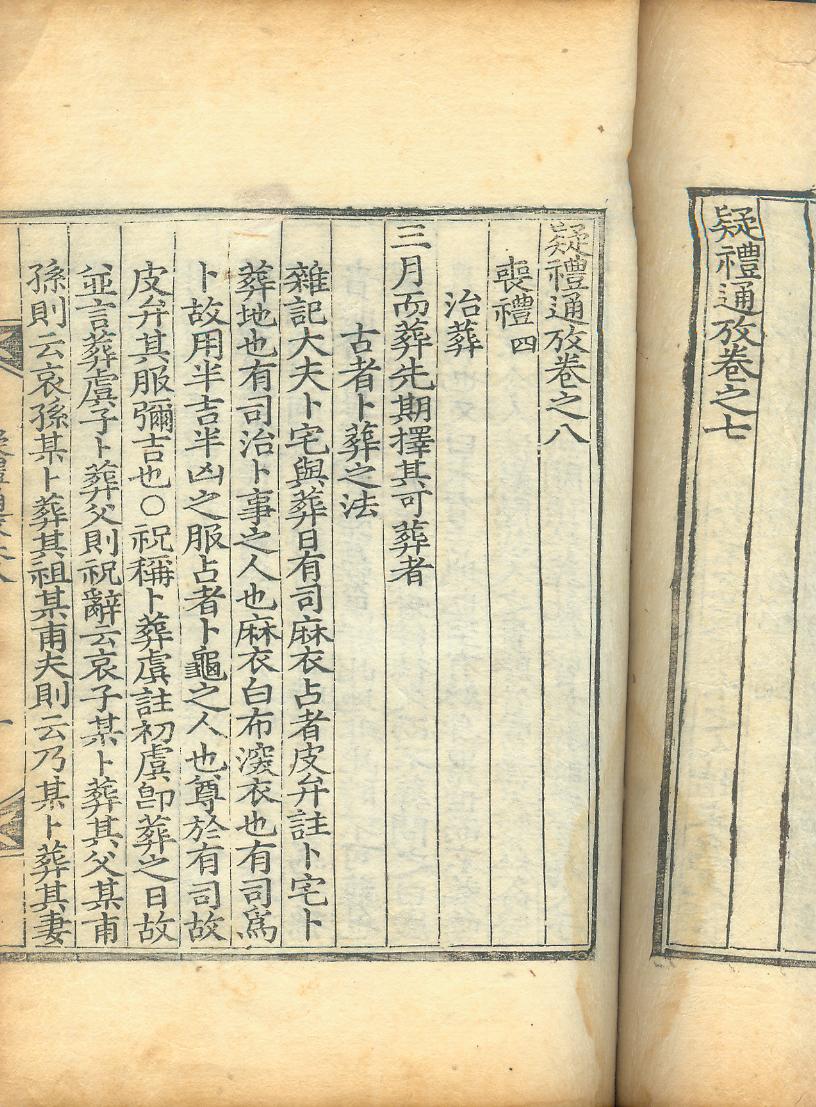 疑禮通攷卷之七
疑禮通攷卷之八
喪禮四
治葬
三月而葬先期擇其可葬者
古者卜葬之法
雜記大夫卜宅與葬日有司麻衣占者皮弁註卜宅卜
葬地也有司治卜事之人也麻衣白布深衣也有司爲
卜故用半吉半凶之服占者卜龜之人也尊於有司故
皮弁其服彌吉也○祝稱卜葬虞註初虞卽葬之日故
並言葬虞子卜葬父則祝辭云哀子某卜葬其父某甫
孫則云哀孫某卜葬其祖某甫夫則云乃某卜葬其妻